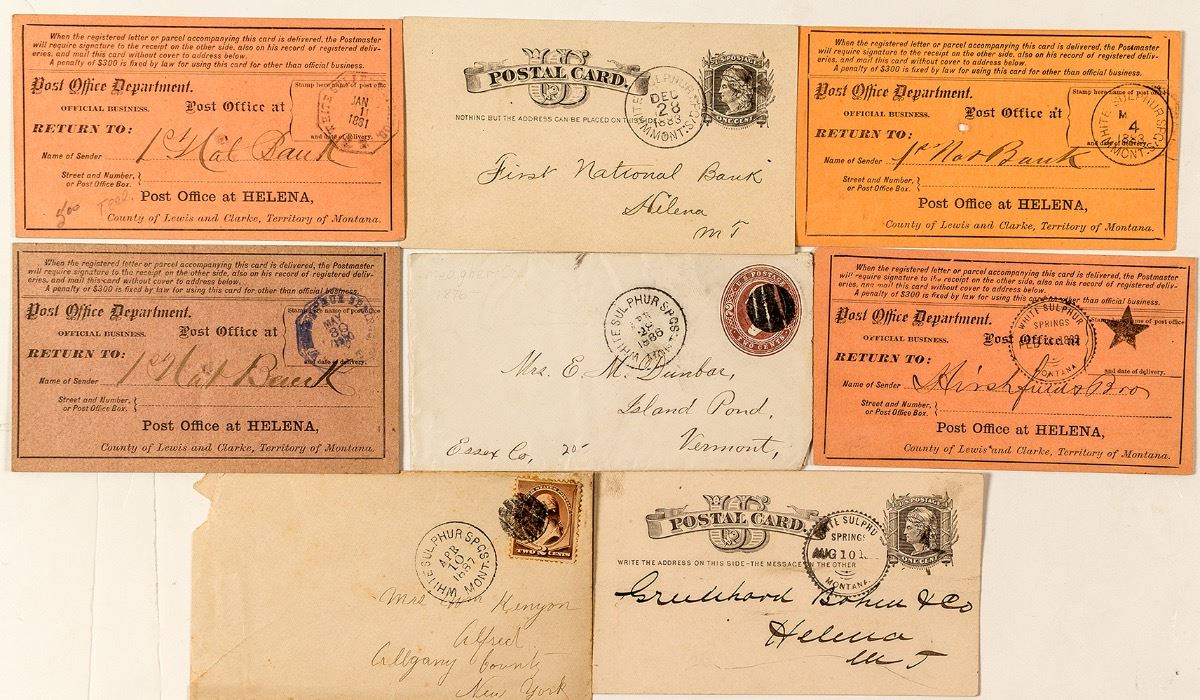 When the registered letter or parcel accompanying this card is delivered, the Postmaster
will require signature to the receipt on the other side, also on his record of registered deliv-
eries, and mail this card without cover to address below.
A penalty of $300 is fixed by law for using this card for other than official business.
Post Office Department.
OFFICIAL BUSINESS.
Post Office at
Stamp here name of post office
and date of delivery.
JAN
1
1881
RETURN TO:
Name of Sender 1st Nat Bank
Street and Number,
or Post Office Box.
Post Office at HELENA,
County of Lewis and Clarke, Territory of Montana.
US
POSTAL CARD.
NOTHING BUT THE ADDRESS CAN BE PLACED ON THIS SIDE.
U.S. POSTAGE
ONE CENT
WHITE SULPHUR SPGS
DEC
28
1883
MONT.
First National Bank
Helena
M T
When the registered letter or parcel accompanying this card is delivered, the Postmaster
will require signature to the receipt on the other side, also on his record of registered deliv-
eries, and mail this card without cover to address below.
A penalty of $300 is fixed by law for using this card for other than official business.
Post Office Department.
OFFICIAL BUSINESS.
Post Office at
Stamp here name of post office
and date of delivery.
WHITE SULPHUR SPGS
4
1883
MONT.
RETURN TO:
Name of Sender 1st Nat Bank
Street and Number,
or Post Office Box.
Post Office at HELENA,
County of Lewis and Clarke, Territory of Montana.
When the registered letter or parcel accompanying this card is delivered, the Postmaster
will require signature to the receipt on the other side, also on his record of registered deliv-
eries, and mail this card without cover to address below.
A penalty of $300 is fixed by law for using this card for other than official business.
Post Office Department.
OFFICIAL BUSINESS.
Post Office at
Stamp here name of post office
and date of delivery.
RETURN TO:
Name of Sender 1st Nat Bank
Street and Number,
or Post Office Box.
Post Office at HELENA,
County of Lewis and Clarke, Territory of Montana.
Meagher
1876
WHITE SULPHUR SPGS.
APR
1886
MONT.
U.S. POSTAGE
TWO CENTS
Mrs. E. M. Dunbar,
Island Pond,
Vermont,
Essex Co,
When the registered letter or parcel accompanying this card is delivered, the Postmaster
will require signature to the receipt on the other side, also on his record of registered deliv-
eries, and mail this card without cover to address below.
A penalty of $300 is fixed by law for using this card for other than official business.
Post Office Department.
OFFICIAL BUSINESS.
Post Office at
Stamp here name of post office
and date of delivery.
WHITE SULPHUR
SPRINGS
FEB
MONTANA
RETURN TO:
Name of Sender Hirshfield & Bro
Street and Number,
or Post Office Box.
Post Office at HELENA,
County of Lewis and Clarke, Territory of Montana.
WHITE SULPHUR SPGS.
APR
10
1887
MONT.
TWO CENTS
Mrs Kenyon
Alfred
Allgany County
New York
US
POSTAL CARD.
WRITE THE ADDRESS ON THIS SIDE-THE MESSAGE ON THE OTHER
U.S. POSTAGE
ONE CENT
WHITE SULPHU
SPRINGS
AUG 10
MONTANA.
Greenhood Bohm & Co
Helena
M T